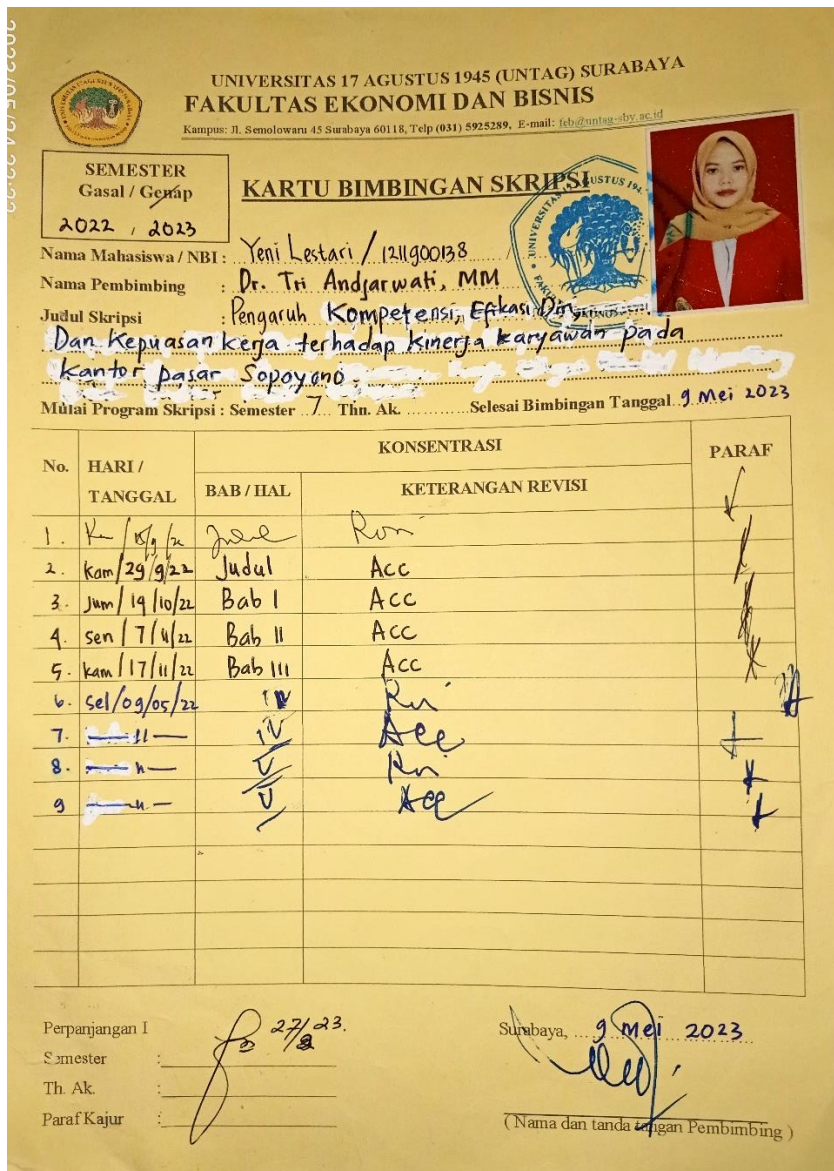 UNIVERSITAS 17 AGUSTUS 1945 (UNTAG) SURABAYA
FAKULTAS EKONOMI DAN BISNIS
Kampus: Jl. Semolowaru 45 Surabaya 60118, Telp (031) 5925289, E-mail: feb@untag-sby.ac.id
SEMESTER
Gasal / Genap
2022 / 2023
KARTU BIMBINGAN SKRIPSI
Nama Mahasiswa / NBI : Yeni Lestari / 1211900138
Nama Pembimbing : Dr. Tri Andjarwati, MM
Judul Skripsi : Pengaruh Kompetensi, Efikasi Diri,
Dan Kepuasan kerja terhadap kinerja karyawan pada
kantor pasar Sopoyono.
Mulai Program Skripsi : Semester 7 Thn. Ak. .......... Selesai Bimbingan Tanggal 9 Mei 2023
No. HARI / TANGGAL KONSENTRASI PARAF
BAB / HAL KETERANGAN REVISI
1.
2. kam/29/9/22 Judul Acc
3. Jum/19/10/22 Bab I Acc
4. sen/7/11/22 Bab II Acc
5. kam/17/11/22 Bab III Acc
6. sel/09/05/22 IV
7. — 11 — IV Acc
8. — 11 — V
9 — 11 — V Acc
Perpanjangan I 27/23.
Semester :
Th. Ak. :
Paraf Kajur :
Surabaya, 9 Mei 2023
( Nama dan tanda tangan Pembimbing )